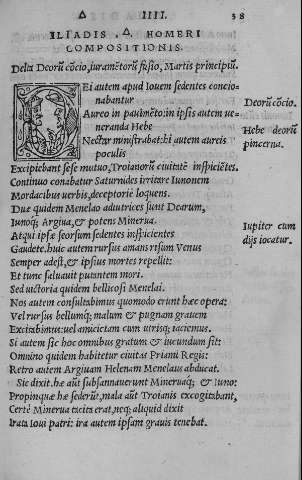 Δ IIII. 38
ILIADIS .Δ. HOMERI
COMPOSITIONIS.
Delta Deorũ cõcio, iuramẽtorũ fusio, Martis principiũ.
DEi autem apud Iouem sedentes concio-
nabantur
Deorũ cõcio.
Aureo in pauimẽto: in ipsis autem ue-
neranda Hebe
Hebe deorũ
Nectar ministrabat: hi autem aureis
pincerna.
poculis
Excipiebant sese mutuo, Troianorũ ciuitatẽ inspiciẽtes.
Continuo conabatur Saturnides irritare Iunonem
Mordacibus uerbis, deceptorie loquens.
Duæ quidem Menelao adiutrices sunt Dearum,
Iuppiter cum
Iunoq; Argiua, & potens Minerua.
dijs iocatur.
Atqui ipsæ seorsum sedentes inspicientes
Gaudent. huic autem rursus amans risum Venus
Semper adest, & ipsius mortes repellit:
Et tunc saluauit putantem mori.
Sed uictoria quidem bellicosi Menelai.
Nos autem consultabimus quomodo erunt hæc opera:
Vel rursus bellumq; malum & pugnam grauem
Excitabimus: uel amicitiam cum utrisq; iaciemus.
Si autem sic hoc omnibus gratum & iucundum sit:
Omnino quidem habitetur ciuitas Priami Regis:
Retro autem Argiuam Helenam Menelaus abducat.
Sic dixit. hæ aũt subsannauerunt Mineruaq; & Iuno:
Propinquæ hæ sederũt, mala aũt Troianis excogitabant,
Certè Minerua tacita erat, neq; aliquid dixit
Irata Ioui patri: ira autem ipsam grauis tenebat.